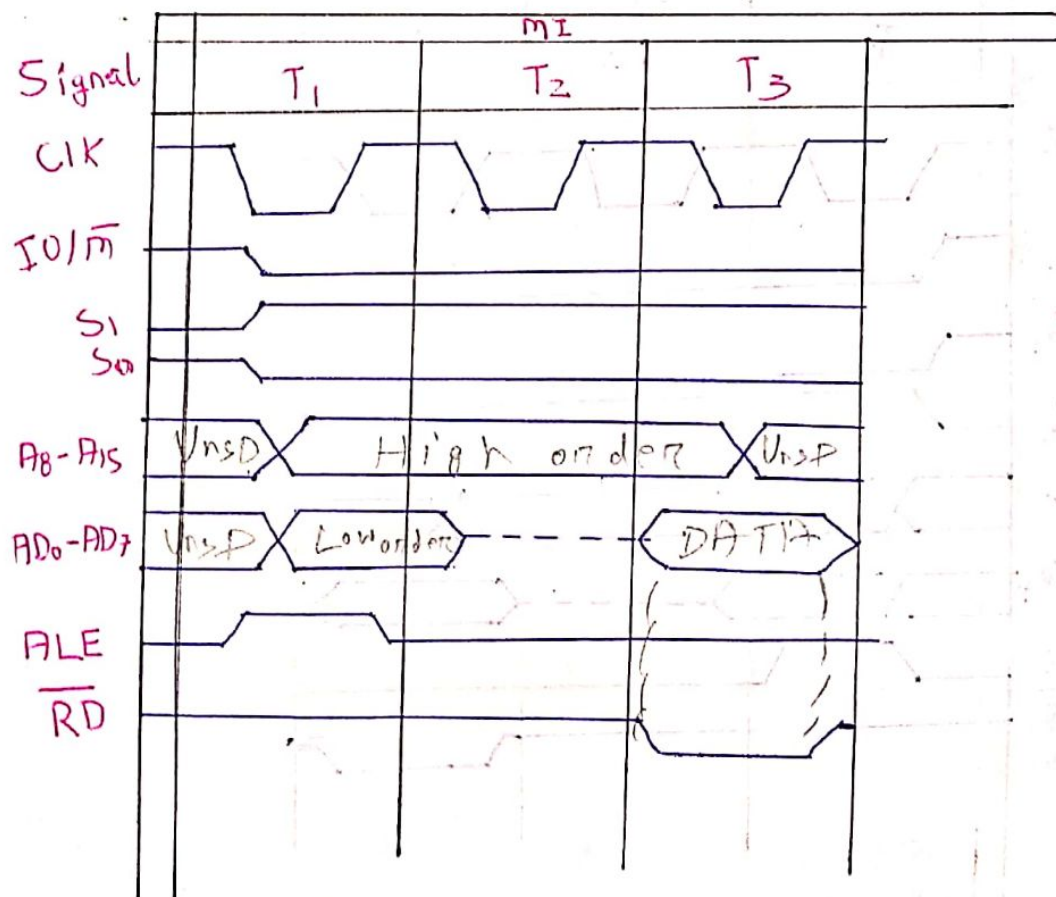 MI
Signal T1 T2 T3
CLK
IO/M̅
S1
S0
A8-A15 UnsP High order UnsP
AD0-AD7 UnsP Low order DATA
ALE
R̅D̅